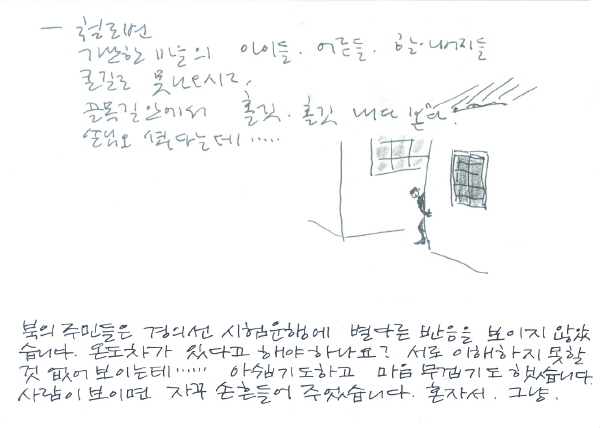 — 철로변
가난한 마을의 아이들. 어른들. 할아버지들
큰길로 못나오시고,
골목길안에서 흘깃. 흘깃 내다 본다.
손님오셨다는데 .....
북의 주민들은 경의선 시험운행에 별다른 반응을 보이지 않았
습니다. 온도차가 있다고 해야 하나요? 서로 이해하지 못할
것 없어 보이는데...... 아쉽기도하고 마음 무겁기도 했습니다.
사람이 보이면 자꾸 손흔들어 주었습니다. 혼자서. 그냥.